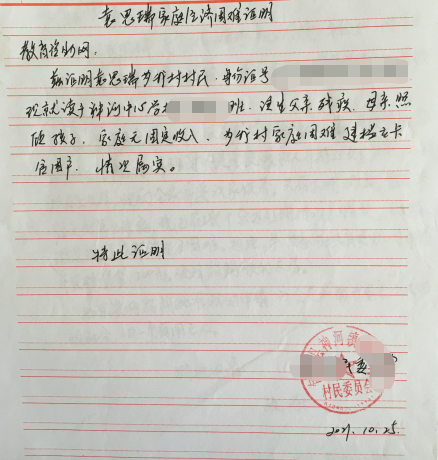 袁思瑞家庭经济困难证明
教育资助网.
兹证明袁思瑞为 村村民,身份证号
现就读于 河中心学校 班,该生父亲残疾,母亲照
顾孩子,家庭无固定收入,为 村家庭困难建档立卡
贫困户,情况属实。
特此证明
村民委员会
2021.10.25